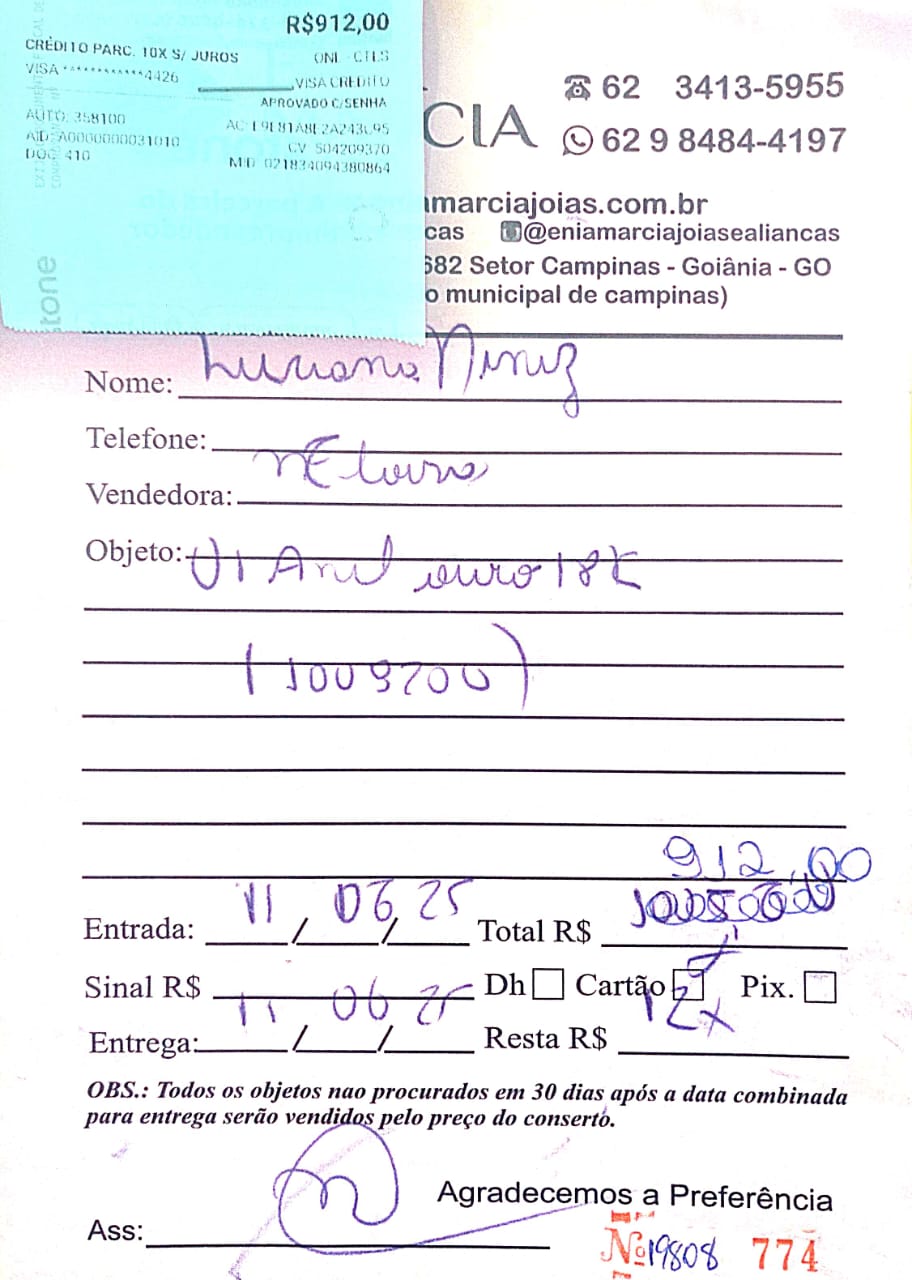 R$912,00
CRÉDITO PARC. 10X S/ JUROS ONL-CTLS
VISA ************4426 VISA CREDITO
APROVADO C/SENHA
AUTO: 358100
AID: A0000000031010 CV 504209370
DOC 410 MID 021834094380864
tone
CIA
62 3413-5955
62 9 8484-4197
marciajoias.com.br
cas @eniamarciajoiasealiancas
682 Setor Campinas - Goiânia - GO
o municipal de campinas)
Nome: Luciana
Telefone:
Vendedora:
Objeto: 01 Anel ouro 18K
912,00
Entrada: 11 / 06 / 25 Total R$
Sinal R$ Dh Cartão Pix.
12x
Entrega: 11 / 06 / 25 Resta R$
OBS.: Todos os objetos nao procurados em 30 dias após a data combinada
para entrega serão vendidos pelo preço do conserto.
Agradecemos a Preferência
Ass:
Nº 19808 774